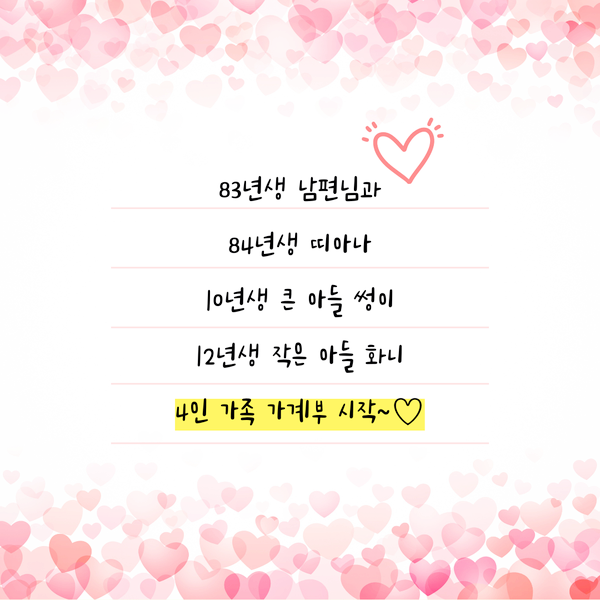 83년생 남편님과
84년생 띠아나
10년생 큰 아들 썽이
12년생 작은 아들 화니
4인 가족 가계부 시작~♡